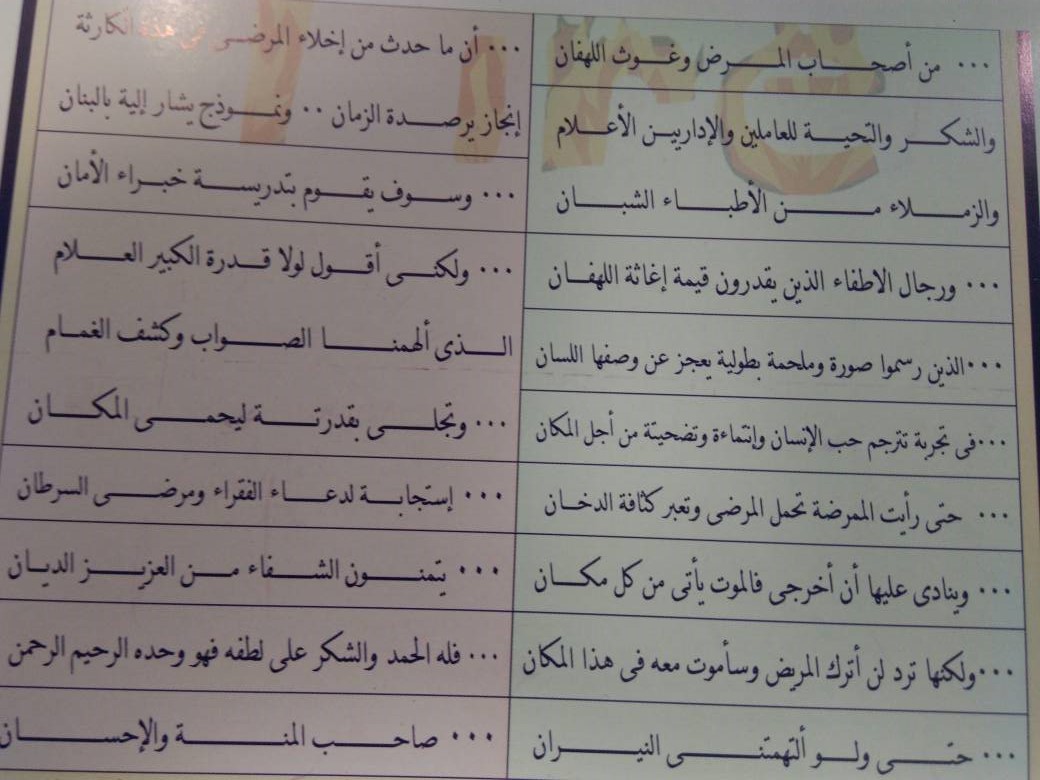 ... من أصحاب المرض وغوث اللهفان
والشكر والتحية للعاملين والإداريين الأعلام
والزملاء من الأطباء الشبان
... ورجال الاطفاء الذين يقدرون قيمة إغاثة اللهفان
...الذين رسموا صورة وملحمة بطولية يعجز عن وصفها اللسان
...فى تجربة تترجم حب الإنسان وإنتماءة وتضحيتة من أجل المكان
... حتى رأيت الممرضة تحمل المرضى وتعبر كثافة الدخان
... وينادى عليها أن أخرجى فالموت يأتى من كل مكان
...ولكنها ترد لن أترك المريض وسأموت معه فى هذا المكان
... حتى ولو ألتهمتنى النيران
... أن ما حدث من إخلاء المرضى فى هذه الكارثة
إنجاز يرصدة الزمان .. ونموذج يشار إلية بالبنان
... وسوف يقوم بتدريسة خبراء الأمان
... ولكنى أقول لولا قدرة الكبير العلام
الذى ألهمنا الصواب وكشف الغمام
... وتجلى بقدرتة ليحمى المكان
... إستجابة لدعاء الفقراء ومرضى السرطان
... يتمنون الشفاء من العزيز الديان
... فله الحمد والشكر على لطفه فهو وحده الرحيم الرحمن
... صاحب المنة والإحسان